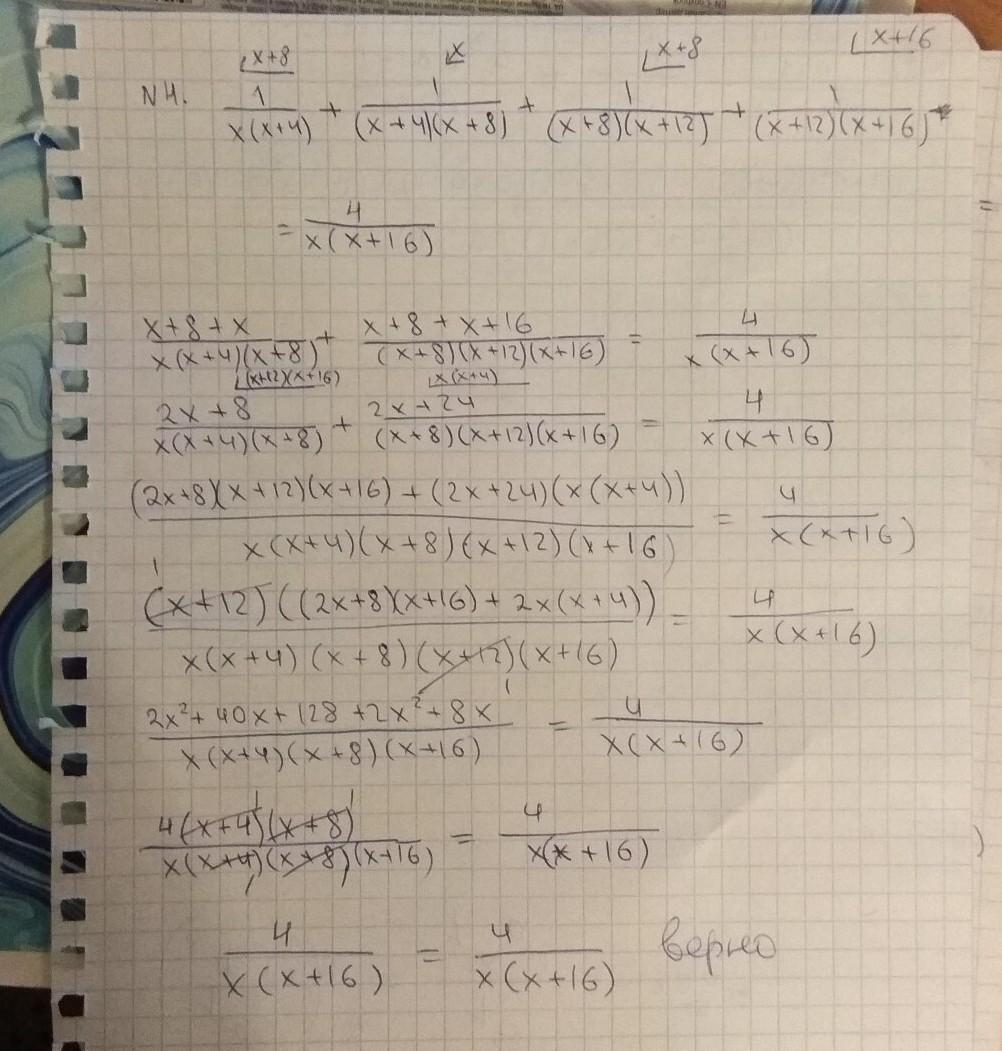 x+8 x x+8 x+16
N4. 1/(x(x+4)) + 1/((x+4)(x+8)) + 1/((x+8)(x+12)) + 1/((x+12)(x+16)) =
= 4/(x(x+16))
(x+8+x)/(x(x+4)(x+8)) + (x+8+x+16)/((x+8)(x+12)(x+16)) = 4/(x(x+16))
(x+12)(x+16) x(x+4)
(2x+8)/(x(x+4)(x+8)) + (2x+24)/((x+8)(x+12)(x+16)) = 4/(x(x+16))
((2x+8)(x+12)(x+16) + (2x+24)(x(x+4)))/(x(x+4)(x+8)(x+12)(x+16)) = 4/(x(x+16))
1
(x+12)((2x+8)(x+16) + 2x(x+4))/(x(x+4)(x+8)(x+12)(x+16)) = 4/(x(x+16))
1
(2x²+40x+128+2x²+8x)/(x(x+4)(x+8)(x+16)) = 4/(x(x+16))
1 1
4(x+4)(x+8)/(x(x+4)(x+8)(x+16)) = 4/(x(x+16))
1 1
4/(x(x+16)) = 4/(x(x+16)) верно